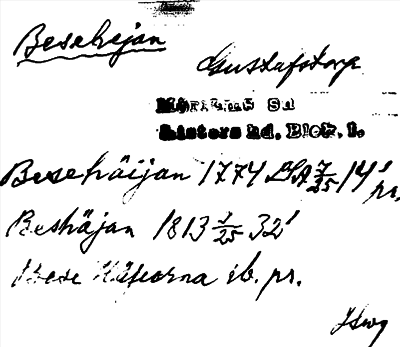 Besehejan
Gustafstorp
Mörrums Sn
Listers hd. Blek. l.
Besehäijan 1774 LSA 7/25 14' pr.
Beshäjan 1813 1/25 32'
Bese Häfvorna ib. pr.